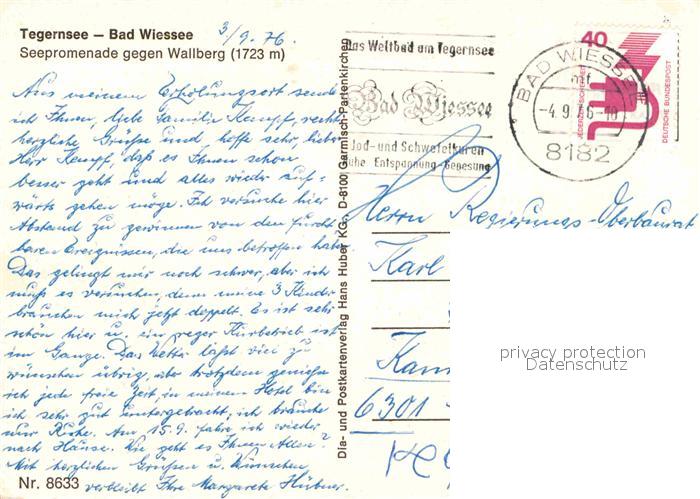 Tegernsee — Bad Wiessee
3/9. 76
Seepromenade gegen Wallberg (1723 m)
Aus meinem Erholungsort sende
ich Ihnen, liebe Familie Kempf, recht
herzliche Grüße und hoffe sehr, lieber
Herr Kempf, daß es Ihnen schon
besser geht und alles wieder auf-
wärts gehen möge. Ich versuche hier
Abstand zu gewinnen von den furcht-
baren Ereignissen, die uns betroffen haben.
Das gelingt mir noch schwer, aber ich
muß es versuchen, denn meine 3 Kinder
brauchen mich jetzt doppelt. Es ist sehr
schön hier u. ein reger Kurbetrieb ist
im Gange. Das Wetter läßt viel zu
wünschen übrig, aber trotzdem genieße
ich jede freie Zeit, in meinem Hotel bin
ich sehr gut untergebracht, ich brauche
nur Ruhe. Am 15.9. fahre ich wieder
nach Hause. Wie geht es Ihnen Allen?
Mit herzlichen Grüßen u. Wünschen
verbleibt Ihre Margarete Hübner
Nr. 8633
Dia- und Postkartenverlag Hans Huber KG, D-8100 Garmisch-Partenkirchen
Das Weltbad am Tegernsee
Bad Wiessee
Jod- und Schwefelkuren
Ruhe Entspannung Genesung
BAD WIESSEE
mf
-4.9.76-10
8182
40
JEDERZEIT SICHERHEIT
DEUTSCHE BUNDESPOST
Herrn Regierungs-Oberbaurat
Karl
6301
privacy protection
Datenschutz